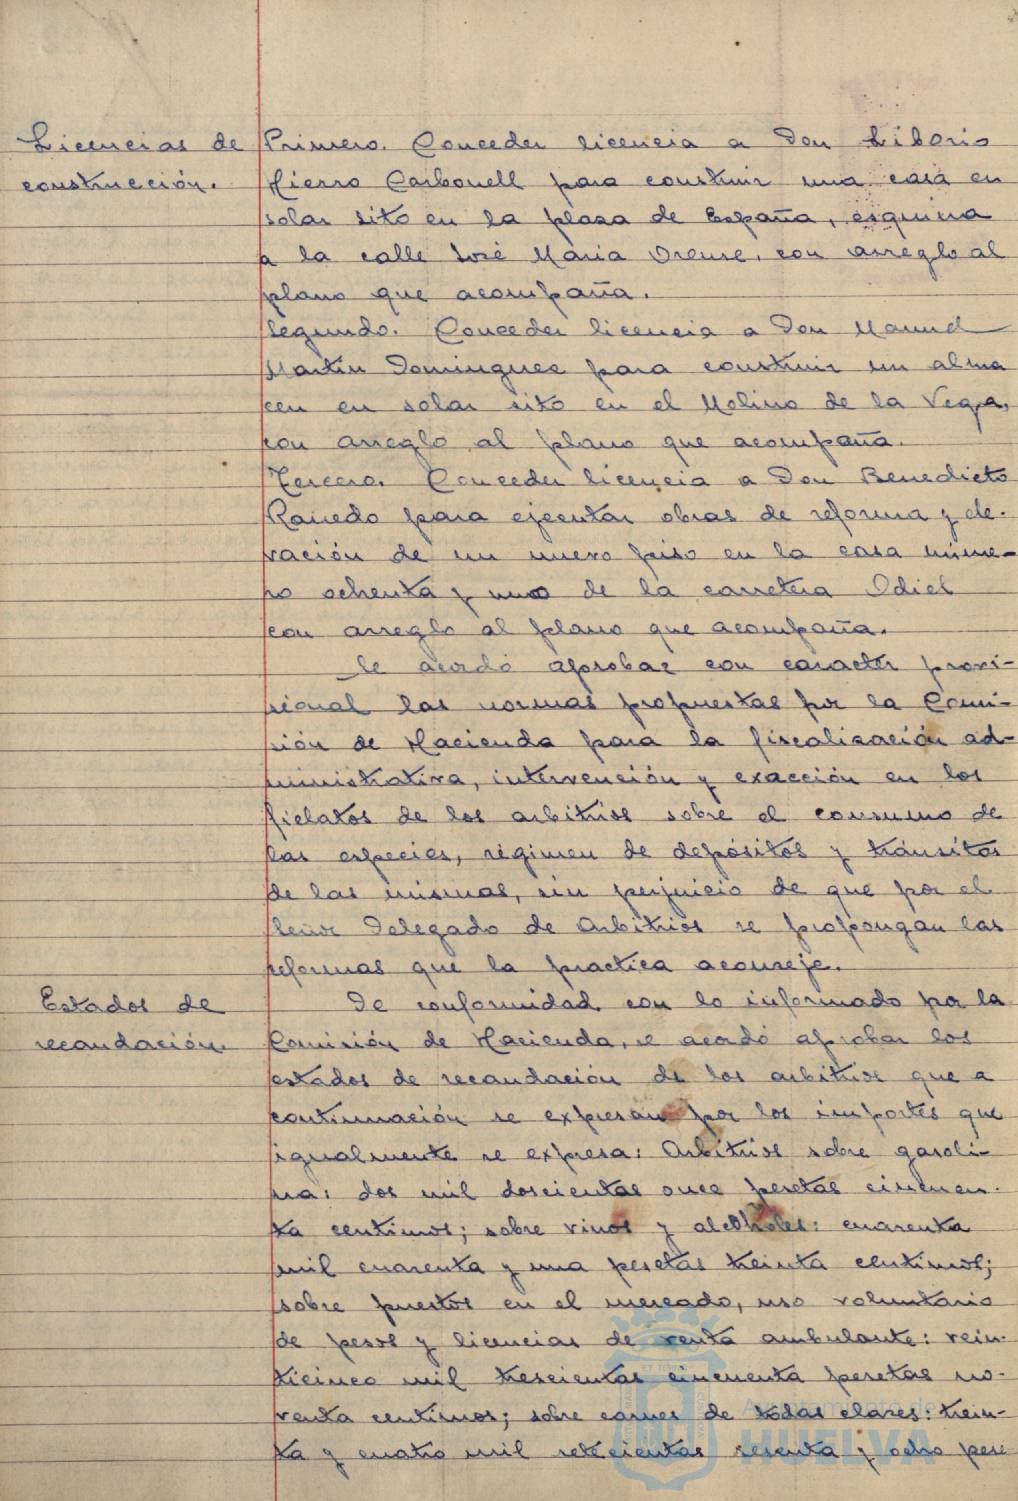 Licencias de
construcción.
Primero. Conceder licencia a Don Liborio
Hierro Carbonell para construir una casa en
solar sito en la plaza de España, esquina
a la calle José María Orense, con arreglo al
plano que acompaña.
Segundo. Conceder licencia a Don Manuel
Martín Dominguez para construir un alma
cen en solar sito en el Molino de la Vega,
con arreglo al plano que acompaña.
Tercero. Conceder licencia a Don Benedicto
para ejecutar obras de reforma y ele-
vación de un nuevo piso en la casa núme-
ro ochenta y uno de la carretera Odiel
con arreglo al plano que acompaña.
Se acordó aprobar con caracter provi-
sional las normas propuestas por la Comi-
sión de Hacienda para la fiscalización ad-
ministrativa, intervención y exacción en los
fielatos de los arbitrios sobre el consumo de
las especies, régimen de depósitos y tránsitos
de las mismas, sin perjuicio de que por el
Señor Delegado de Arbitrios se propongan las
reformas que la practica aconseje.
Estados de
recaudación.
De conformidad con lo informado por la
Comisión de Hacienda, se acordó aprobar los
estados de recaudación de los arbitrios que a
continuación se expresan por los importes que
igualmente se expresa: Arbitrios sobre gasoli-
na: dos mil doscientas once pesetas cincuen-
ta centimos; sobre vinos y alcoholes: cuarenta
mil cuarenta y una pesetas treinta centimos;
sobre puestos en el mercado, uso voluntario
de pesos y licencias de venta ambulante: vein-
ticinco mil trescientas cincuenta pesetas no-
venta centimos; sobre carnes de todas clases: trein-
ta y cuatro mil setecientas sesenta y ocho pese
Ayuntamiento de
HUELVA